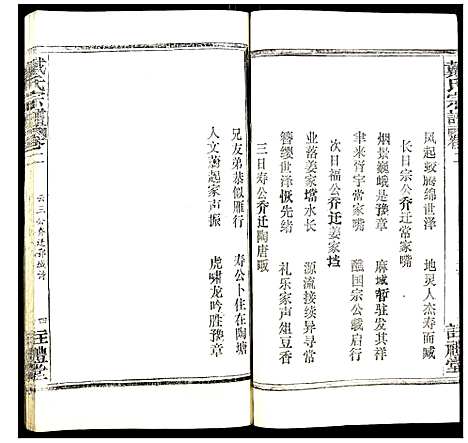 戴氏宗譜
卷二
凤起蛟腾绵世泽　地灵人杰寿而臧
长曰宗公乔迁常家嘴
烟景巍峨是豫章　麻城暂驻发其祥
聿来胥宇常家嘴　醮国宗公载启行
次曰福公乔迁姜家垱
业落姜家垱水长　源流接续异寻常
簪缨世泽恢先绪　礼乐家声俎豆香
三曰寿公乔迁陶唐畈
兄友弟恭似雁行　寿公卜住在陶塘
人文蔚起家声振　虎啸龙吟胜豫章
戴氏宗譜
卷二
四
注禮堂